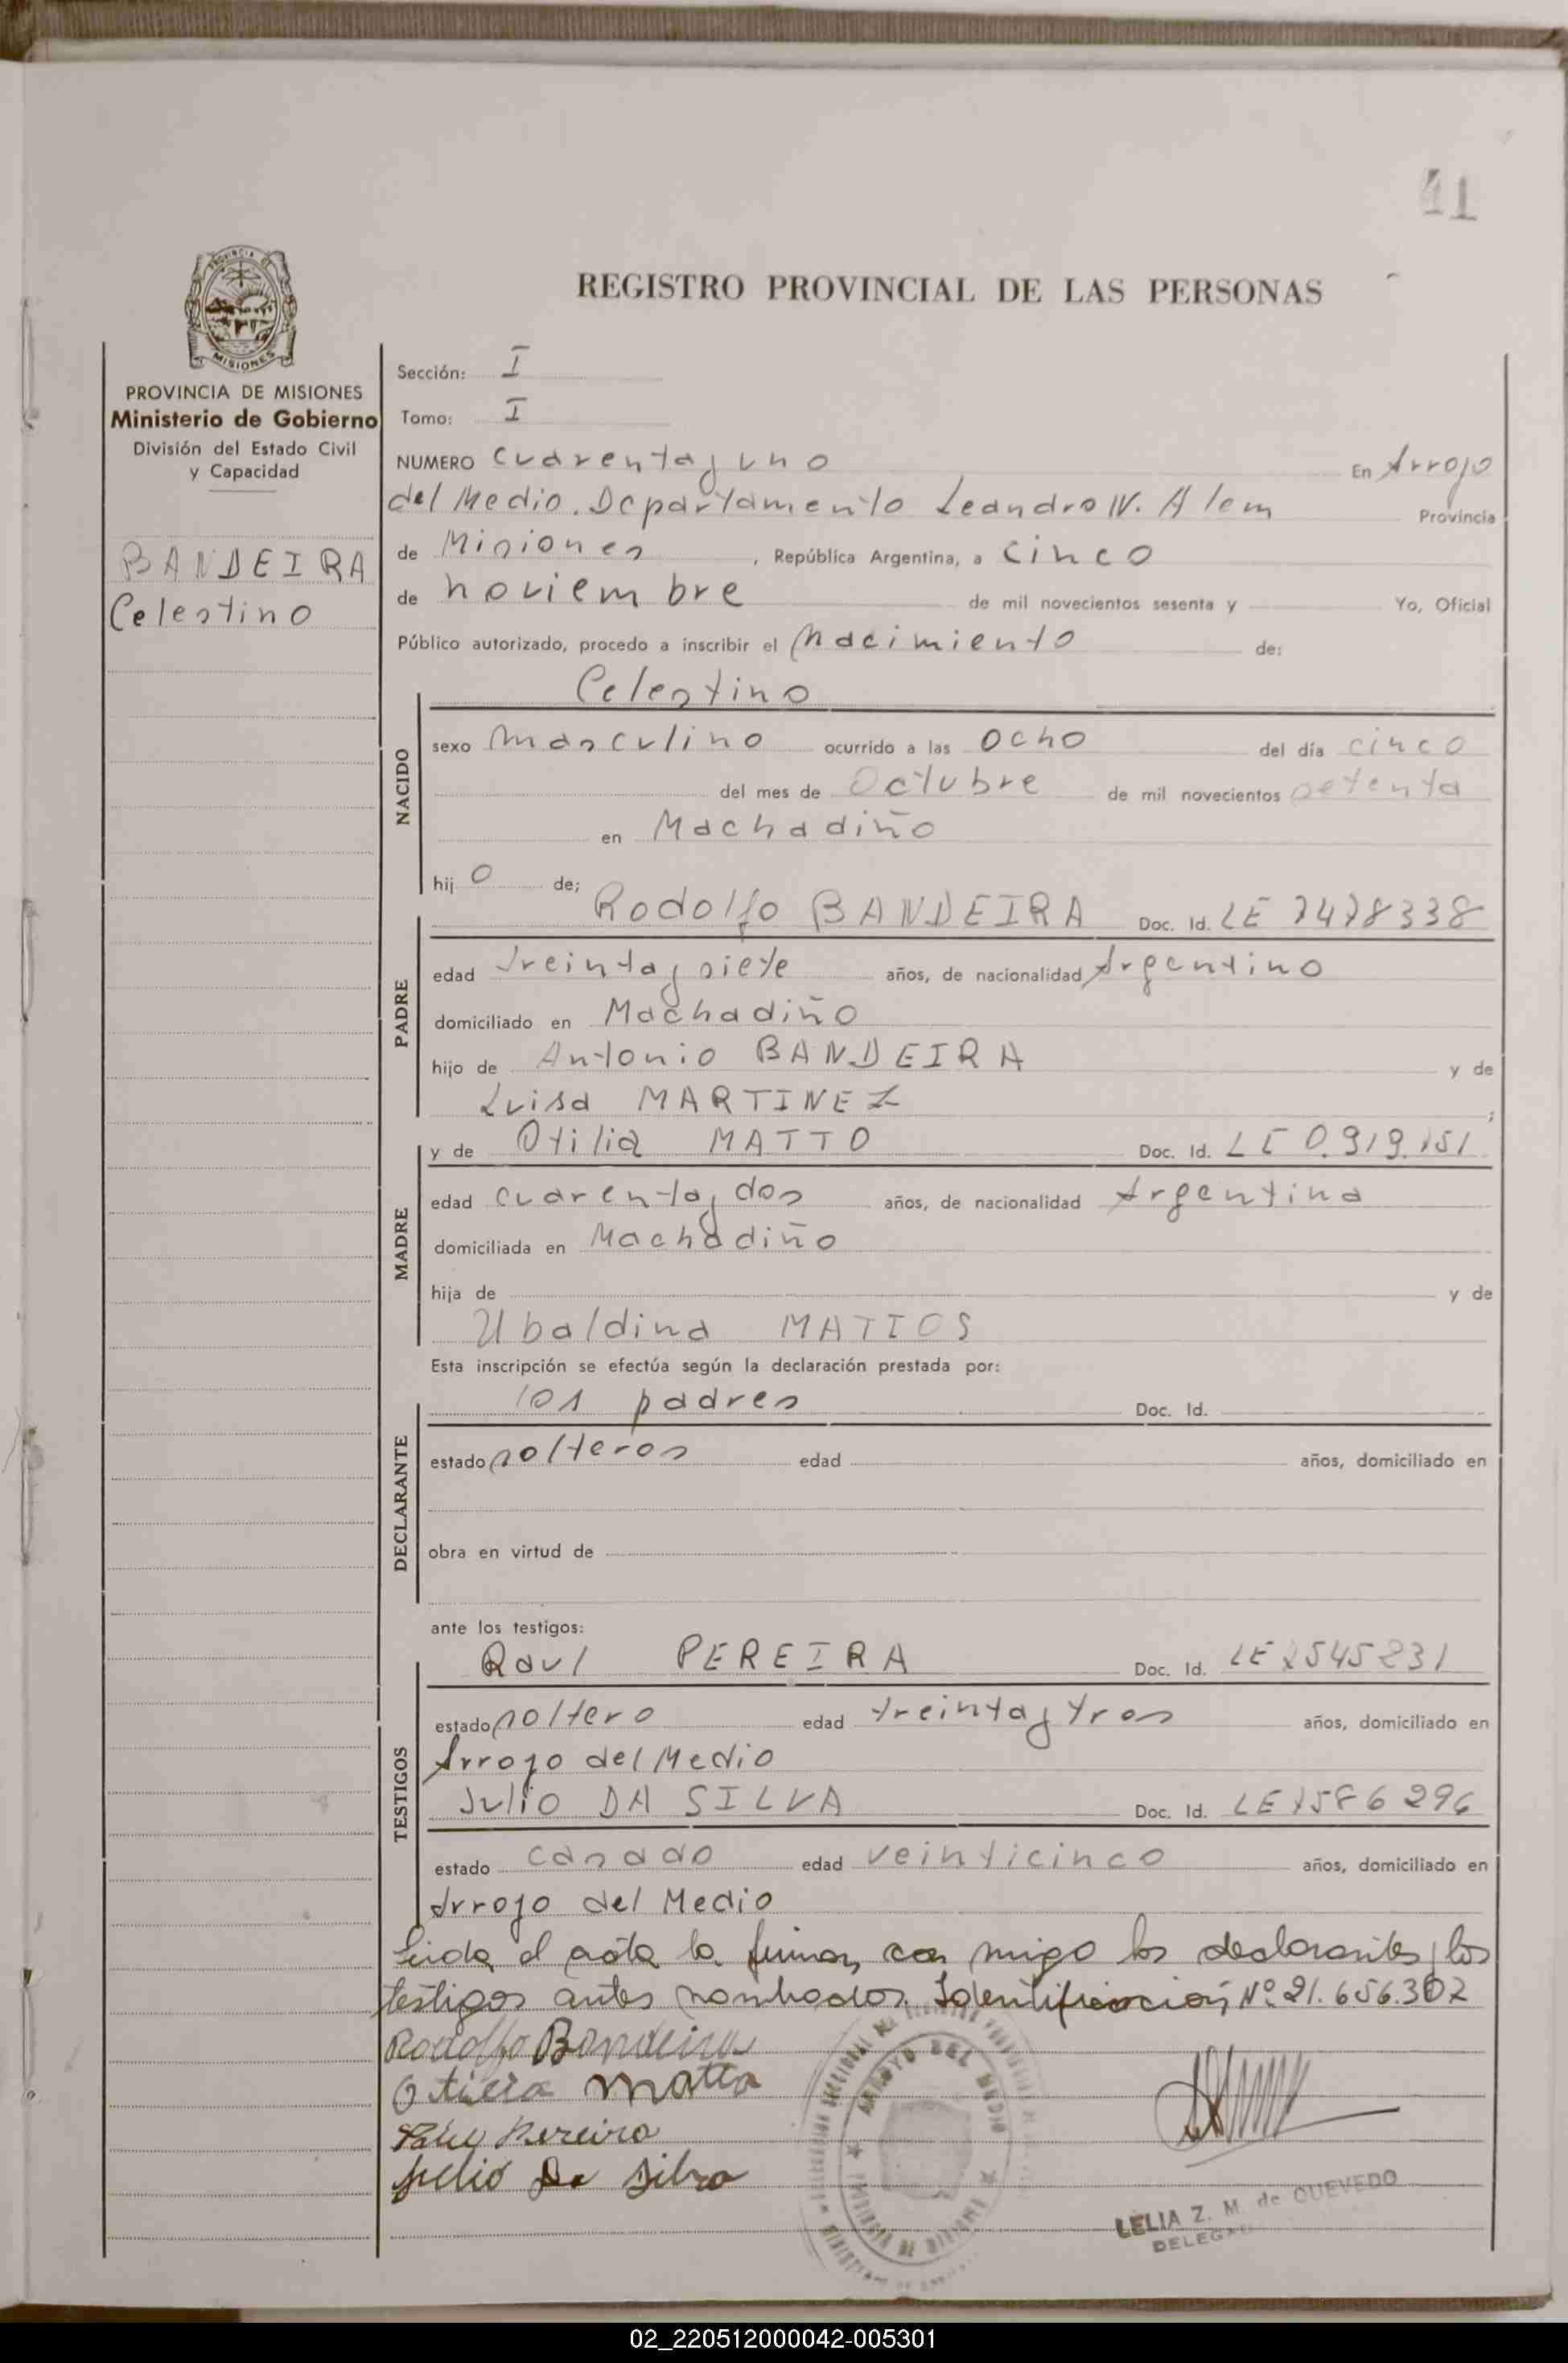 41
REGISTRO PROVINCIAL DE LAS PERSONAS
PROVINCIA DE
MISIONES
PROVINCIA DE MISIONES
Ministerio de Gobierno
División del Estado Civil
y Capacidad
BANDEIRA
Celestino
Sección: I
Tomo: I
NUMERO cuarenta y uno En Arroyo
del Medio. Departamento Leandro N. Alem Provincia
de Misiones, República Argentina, a cinco
de noviembre de mil novecientos sesenta y Yo, Oficial
Público autorizado, procedo a inscribir el nacimiento de:
Celestino
NACIDO
sexo masculino ocurrido a las ocho del día cinco
del mes de Octubre de mil novecientos setenta
en Machadiño
hij o de;
Rodolfo BANDEIRA Doc. Id. LE 7478338
PADRE
edad treinta y siete años, de nacionalidad Argentino
domiciliado en Machadiño
hijo de Antonio BANDEIRA y de
Luisa MARTINEZ ;
y de Otilia MATTO Doc. Id. LC 0.919.151
MADRE
edad cuarenta y dos años, de nacionalidad Argentina
domiciliada en Machadiño
hija de y de
Ubaldina MATTOS
Esta inscripción se efectúa según la declaración prestada por:
los padres Doc. Id.
DECLARANTE
estado solteros edad años, domiciliado en
obra en virtud de
ante los testigos:
Raul PEREIRA Doc. Id. LE 7545231
TESTIGOS
estado soltero edad treinta y tres años, domiciliado en
Arroyo del Medio
Julio DA SILVA Doc. Id. LE 7586296
estado casado edad veinticinco años, domiciliado en
Arroyo del Medio
Leida el acta la firman con migo los declarantes y los
testigos antes nombrados. Identificación Nº 21.656.302
Rodolfo Bandeira
Otilia Matto
Pereira
Julio Da Silva
ARROYO DEL MEDIO
PROVINCIA DE MISIONES
LELIA Z. M. de QUEVEDO
02_220512000042-005301